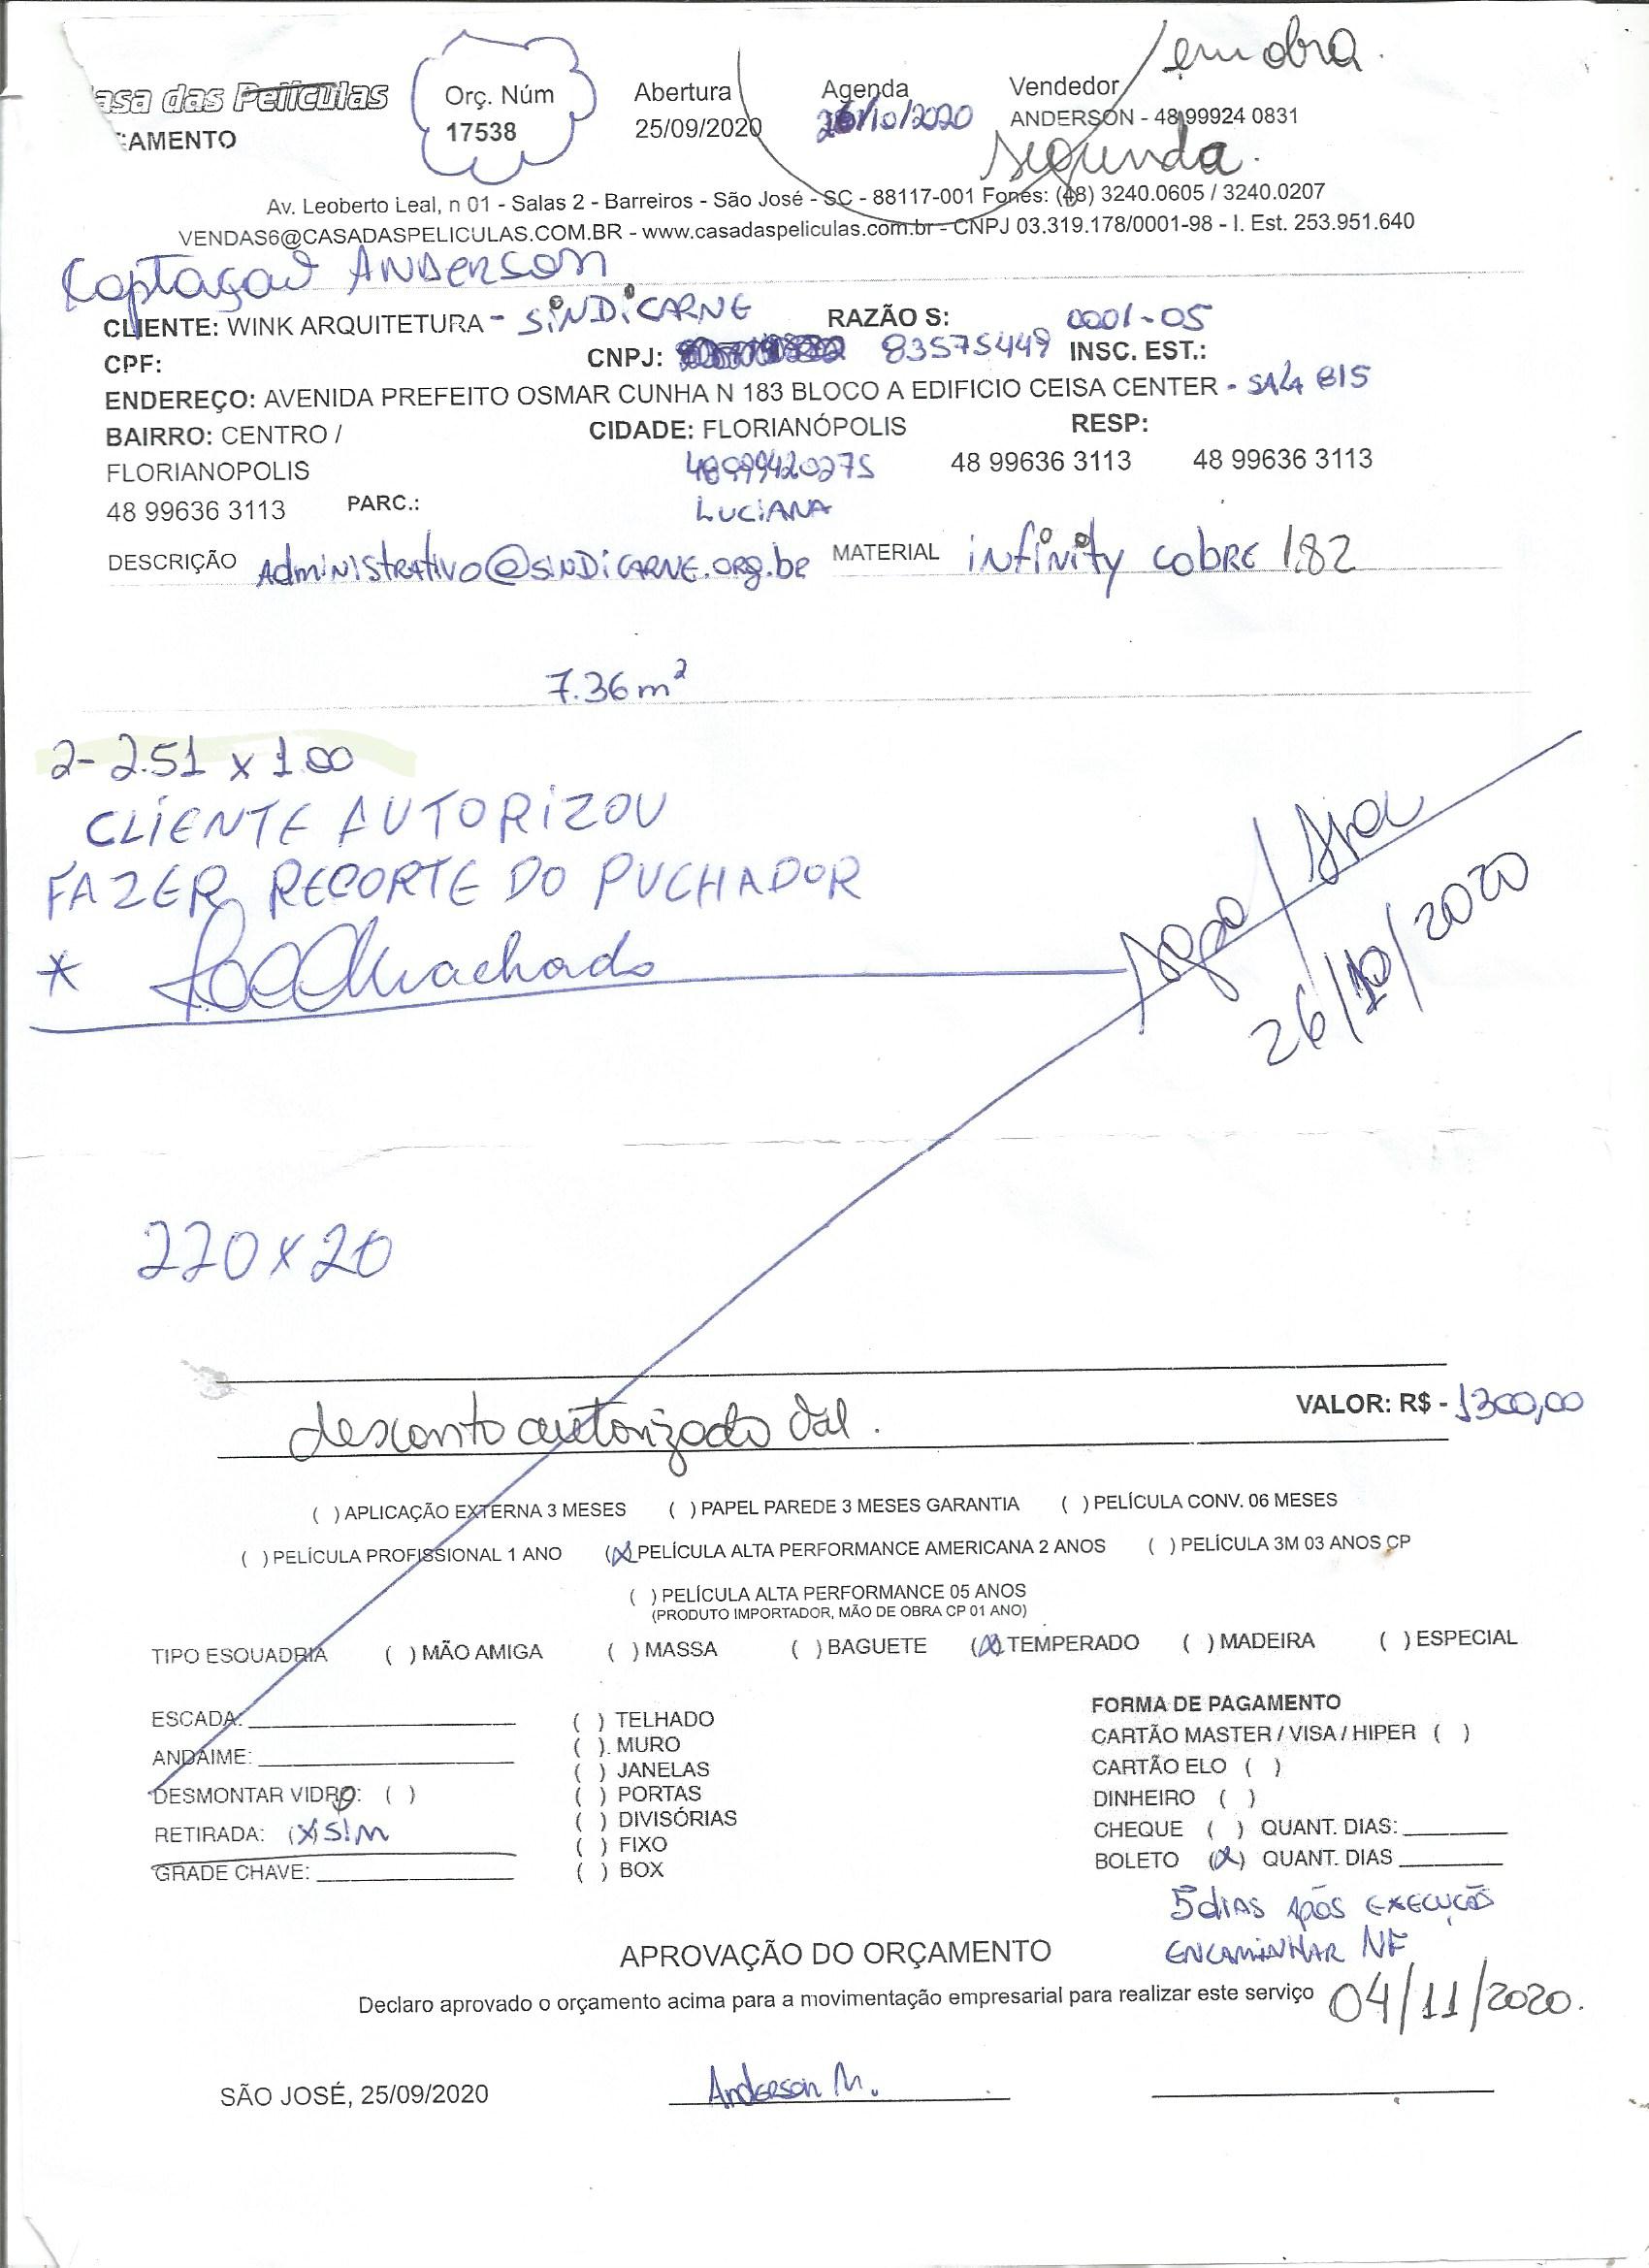 /em obra.
asa das Películas
Orç. Núm
17538
Abertura
25/09/2020
Agenda
26/10/2020
Vendedor
ANDERSON - 48 99924 0831
segunda.
AMENTO
Av. Leoberto Leal, n 01 - Salas 2 - Barreiros - São José - SC - 88117-001 Fones: (48) 3240.0605 / 3240.0207
VENDAS6@CASADASPELICULAS.COM.BR - www.casadaspeliculas.com.br - CNPJ 03.319.178/0001-98 - I. Est. 253.951.640
Captação ANDERSON
CLIENTE: WINK ARQUITETURA - SiNDiCARNE RAZÃO S: 0001-05
CPF: CNPJ: 83575449 INSC. EST.:
ENDEREÇO: AVENIDA PREFEITO OSMAR CUNHA N 183 BLOCO A EDIFICIO CEISA CENTER - SALA 815
BAIRRO: CENTRO / CIDADE: FLORIANÓPOLIS RESP:
FLORIANOPOLIS 48999420275 48 99636 3113 48 99636 3113
48 99636 3113 PARC.: LUCiANA
DESCRIÇÃO AdministRAtivo@SiNDiCARNE.ORg.bR MATERIAL infinity cobRE 1.82
7.36 m²
2- 2.51 x 1.00
CLiENTE AUTORiZOU
FAZER RECORTE DO PUCHADOR
* Machado
26/10/2020
220 x 20
VALOR: R$ - 1300,00
desconto autorizado Val.
( ) APLICAÇÃO EXTERNA 3 MESES ( ) PAPEL PAREDE 3 MESES GARANTIA ( ) PELÍCULA CONV. 06 MESES
( ) PELÍCULA PROFISSIONAL 1 ANO (X) PELÍCULA ALTA PERFORMANCE AMERICANA 2 ANOS ( ) PELÍCULA 3M 03 ANOS CP
( ) PELÍCULA ALTA PERFORMANCE 05 ANOS
(PRODUTO IMPORTADOR, MÃO DE OBRA CP 01 ANO)
TIPO ESQUADRIA ( ) MÃO AMIGA ( ) MASSA ( ) BAGUETE (X) TEMPERADO ( ) MADEIRA ( ) ESPECIAL
ESCADA:
ANDAIME:
DESMONTAR VIDRO: ( )
RETIRADA: (X) SIM
GRADE CHAVE:
( ) TELHADO
( ). MURO
( ) JANELAS
( ) PORTAS
( ) DIVISÓRIAS
( ) FIXO
( ) BOX
FORMA DE PAGAMENTO
CARTÃO MASTER / VISA / HIPER ( )
CARTÃO ELO ( )
DINHEIRO ( )
CHEQUE ( ) QUANT. DIAS:
BOLETO (X) QUANT. DIAS
5 diAS APÓS EXECUÇÃO
ENCAMiNHAR NF
APROVAÇÃO DO ORÇAMENTO
Declaro aprovado o orçamento acima para a movimentação empresarial para realizar este serviço 04/11/2020.
SÃO JOSÉ, 25/09/2020
Anderson M.